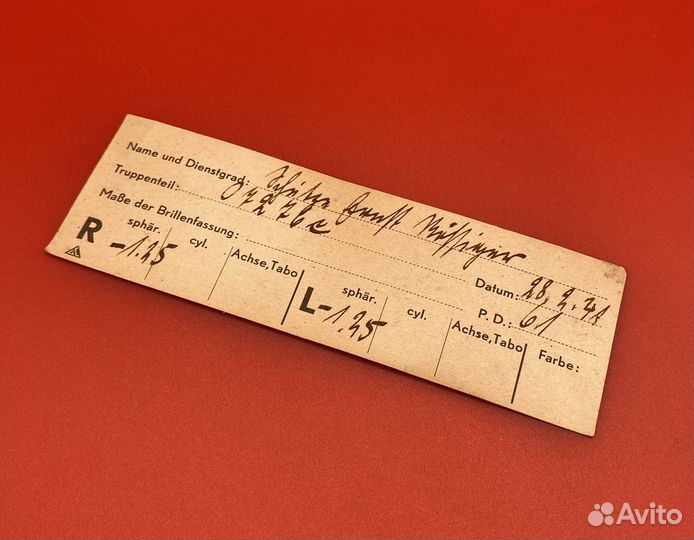 Name und Dienstgrad: Schütze Ernst
Truppenteil: 27276c
Maße der Brillenfassung:
Datum: 28.2.41
P. D.: 61
R sphär. -1.25 cyl. Achse, Tabo
L sphär. -1.25 cyl. Achse, Tabo
Farbe:
Avito